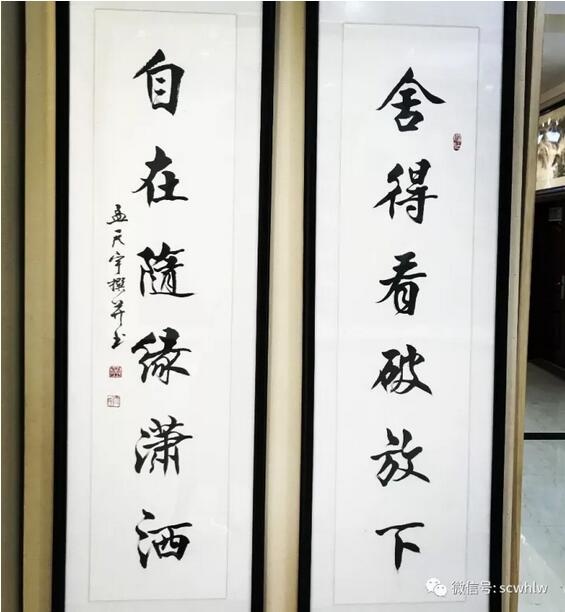 舍得看破放下
自在随缘潇洒
孟天宇撰并书
微信号: scwhlw